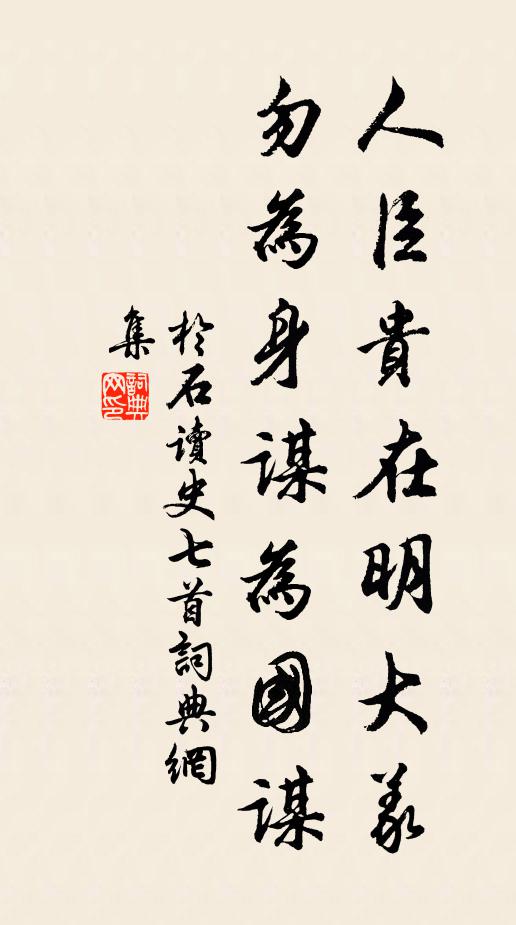 人臣貴在明大義
勿為身謀為國謀
於石讀史七首詞典網
集
詞典
网印